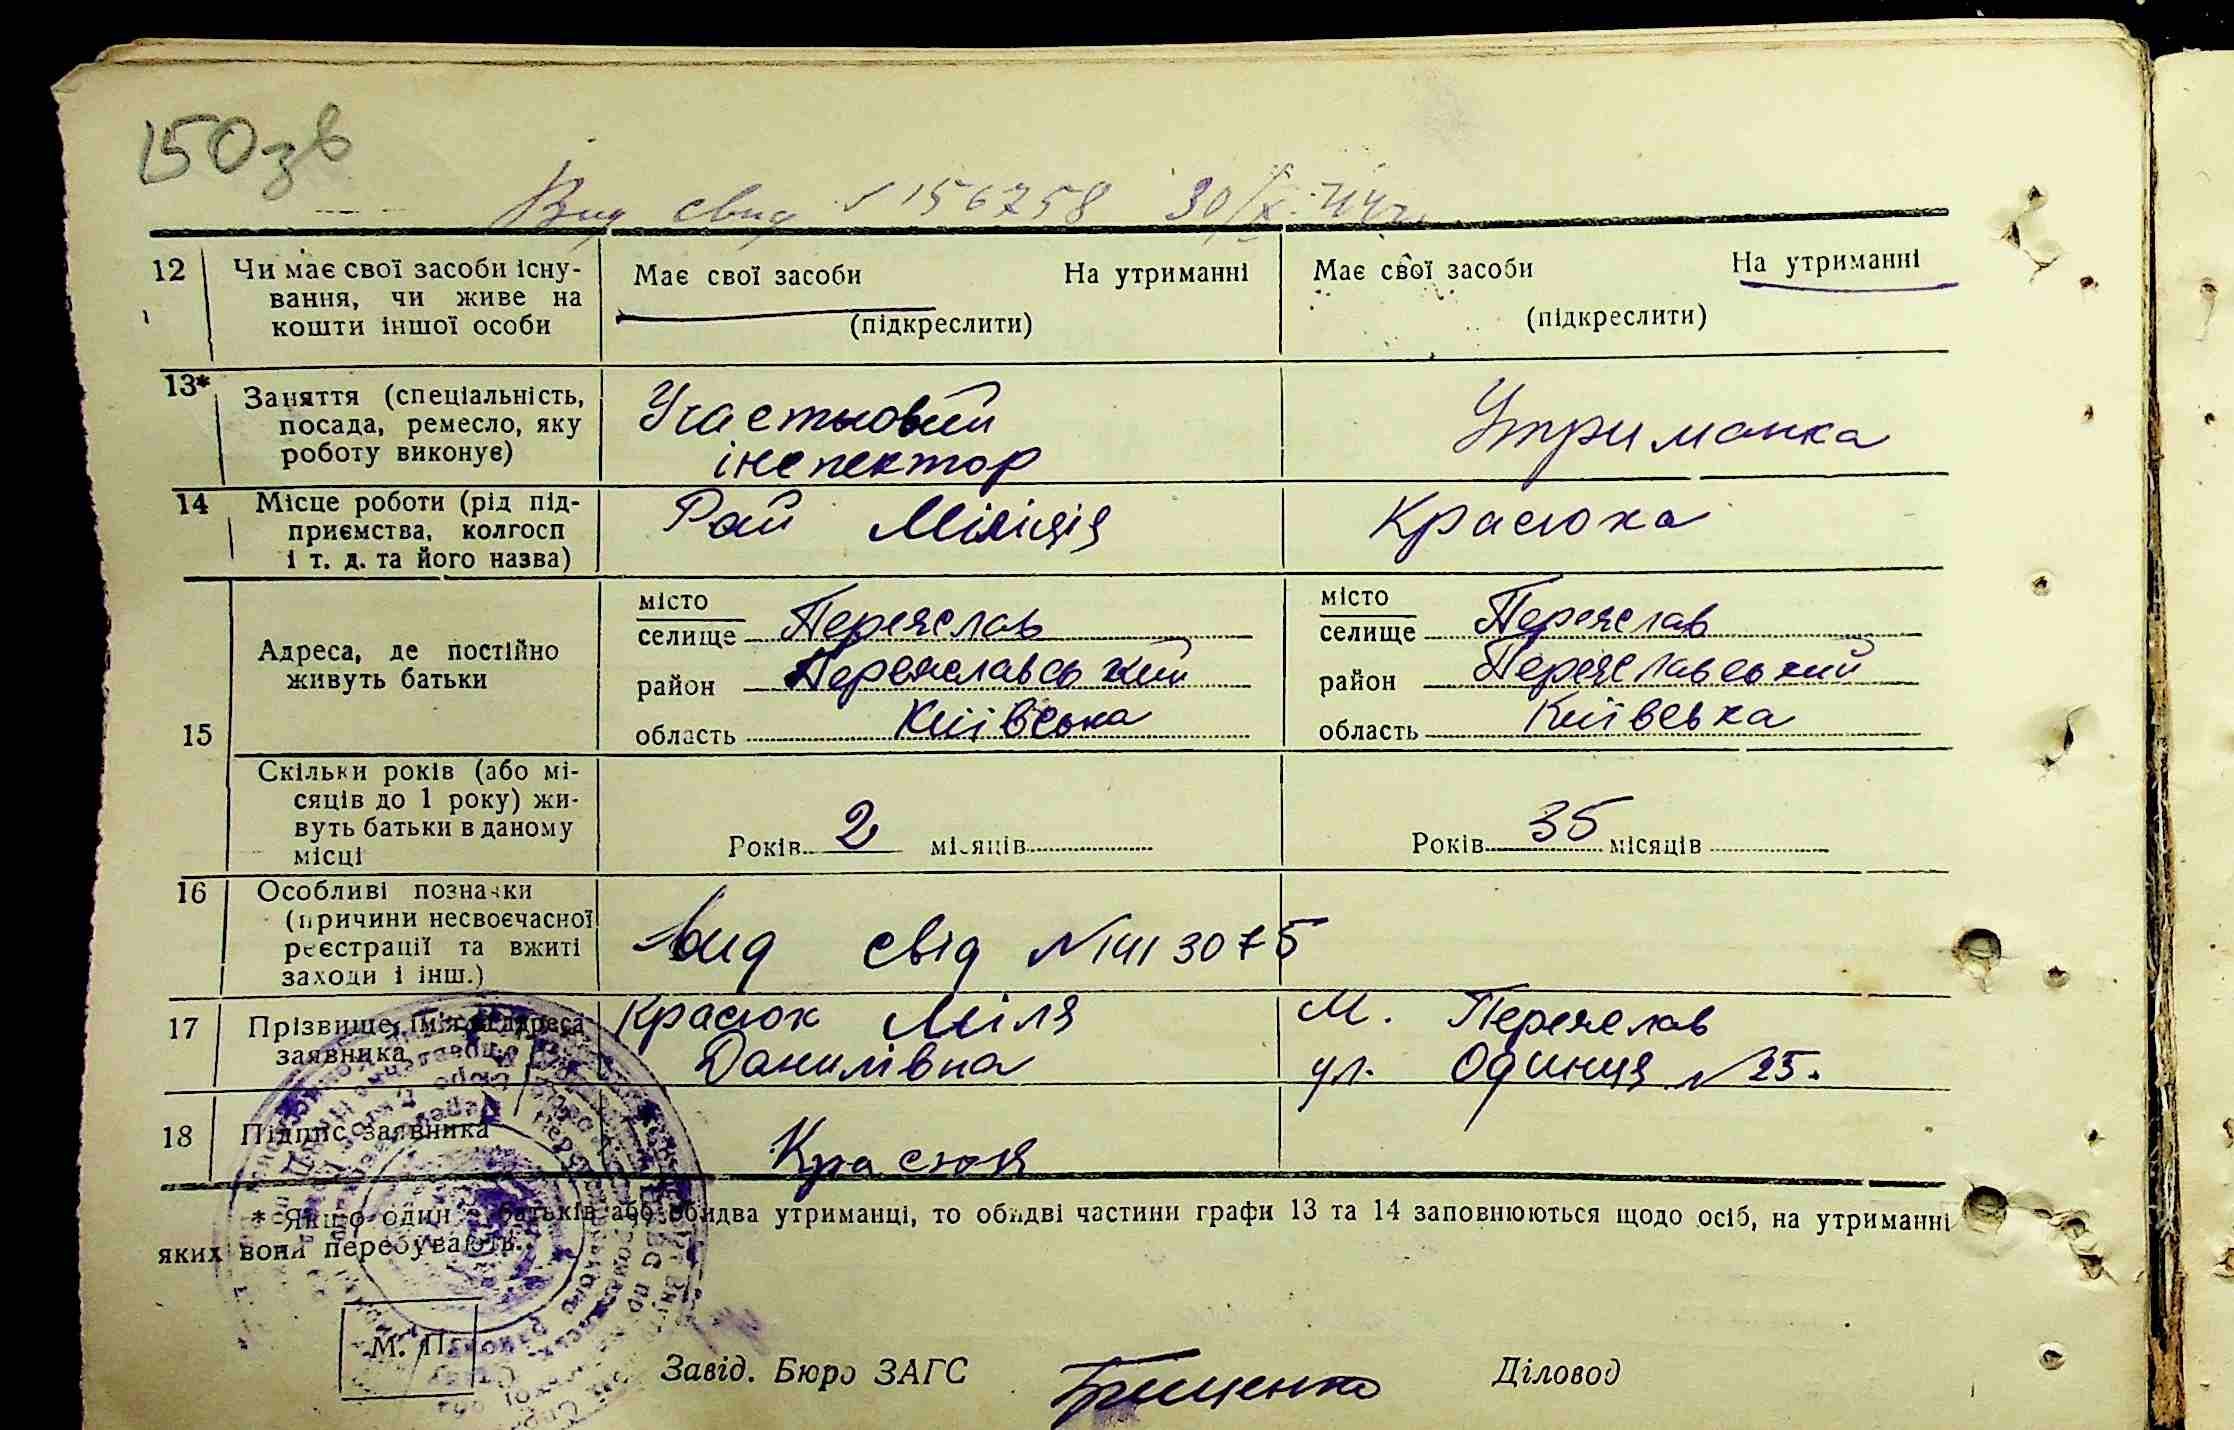 150зв
Вид свид №156758 30/IX.44г.
12 Чи має свої засоби існу-
вання, чи живе на
кошти іншої особи
Має свої засоби На утриманні
(підкреслити)
Має свої засоби На утриманні
(підкреслити)
13* Заняття (спеціальність,
посада, ремесло, яку
роботу виконує)
Участковий
інспектор
Утриманка
14 Місце роботи (рід під-
приємства, колгосп
і т. д. та його назва)
Рай Міліція
Красюка
15 Адреса, де постійно
живуть батьки
місто
селище Переяслав
район Переяславський
область Київська
місто
селище Переяслав
район Переяславський
область Київська
Скільки років (або мі-
сяців до 1 року) жи-
вуть батьки в даному
місці
Років 2 місяців
Років 35 місяців
16 Особливі позначки
(причини несвоєчасної
реєстрації та вжиті
заходи і інш.)
Вид свід №1413075
17 Прізвище, ім'я та адреса
заявника
Красюк Міля
Данилівна
м. Переяслав
ул. Одинця №25.
18 Підпис заявника
Красюк
* Якщо один з батьків або обидва утриманці, то обидві частини графи 13 та 14 заповнюються щодо осіб, на утриманні
яких вони перебувають.
М. П.
Завід. Бюро ЗАГС Грищенко Діловод